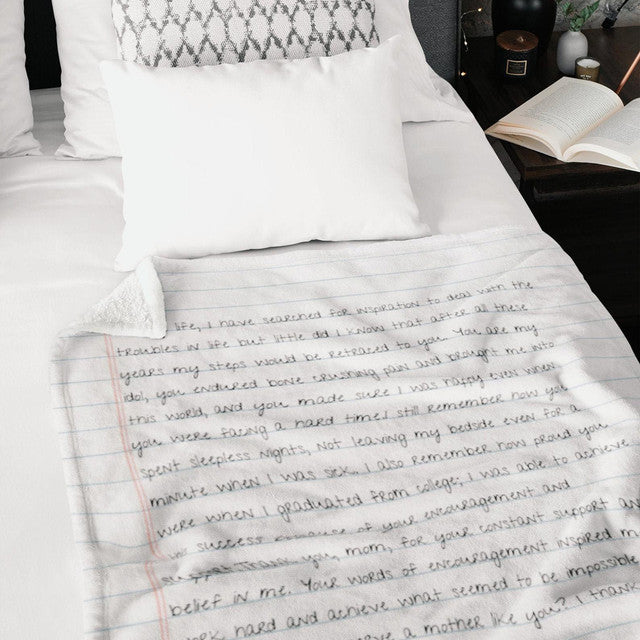 life, I have searched for inspiration to deal with the
trouble in life but little did I know that after all these
years my steps would be retraced to you. You are my
idol, you endured bone crushing pain and brought me into
this world, and you made sure I was happy even when
you were facing a hard time! I still remember how you
spent sleepless nights, not leaving my bedside even for a
minute when I was sick. I also remember how proud you
were when I graduated from college; I was able to achieve
success because of your encouragement and
you, mom, for your constant support and
belief in me. Your words of encouragement inspired me
work hard and achieve what seemed to be impossible
a mother like you? I thank